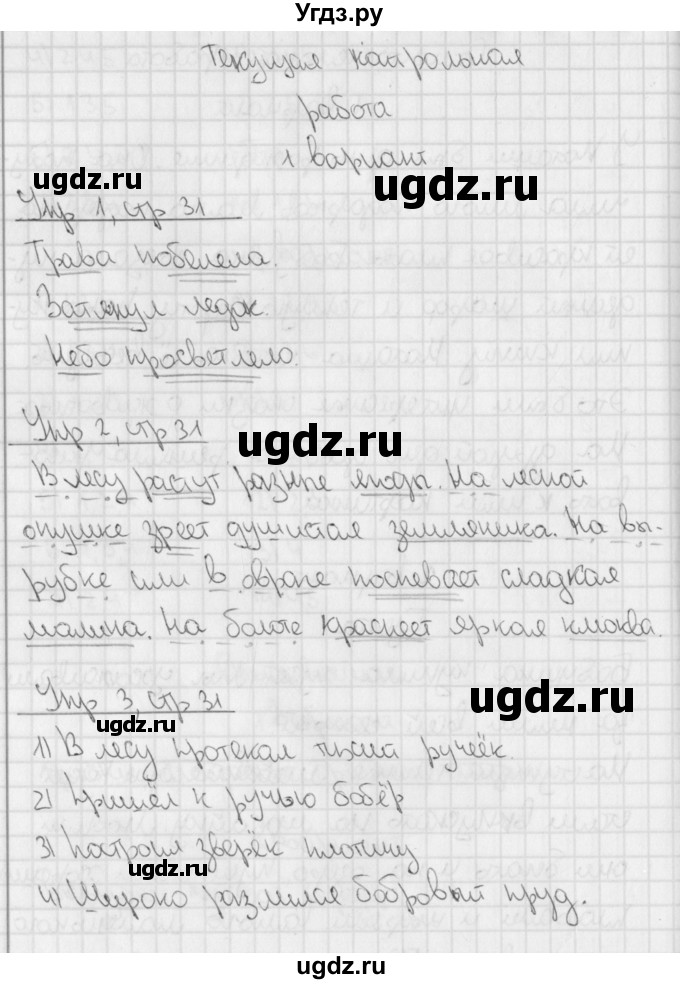 Угдз.ру
Текущая контрольная
работа
1 вариант
ugdz.ru ugdz.ru
Упр 1, стр 31
Трава побелела.
Затянул ледок.
Небо просветлело.
Упр 2, стр 31
ugdz.ru
В лесу растут разные ягоды. На лесной
опушке зреет душистая земляника. На вы-
рубке или в овраге поспевает сладкая
малина. На болоте краснеет яркая клюква.
Упр 3, стр 31
ugdz.ru
ugdz.ru
1) В лесу протекал тихий ручеёк.
2) Пришёл к ручью бобёр
3) Построил зверёк плотину
ugdz.ru
4) Широко разлился бобровый пруд.
ugdz.ru